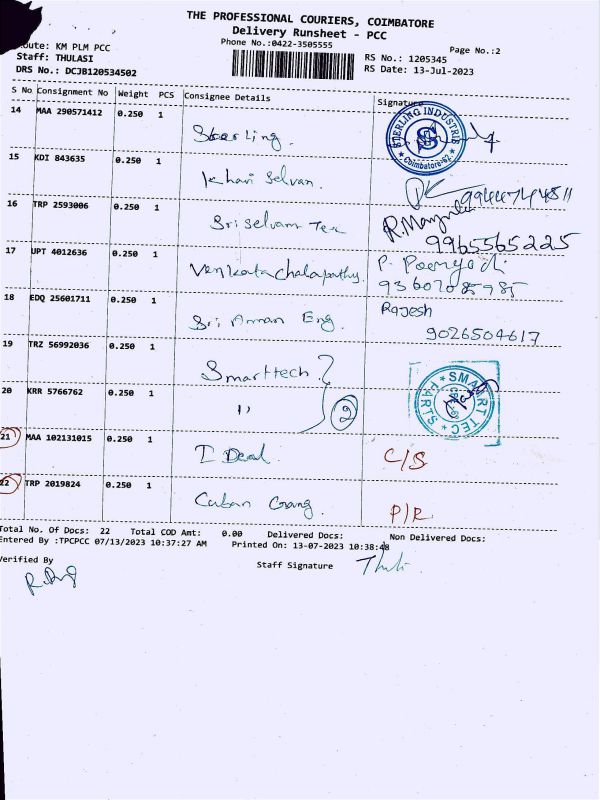 THE PROFESSIONAL COURIERS, COIMBATORE
Delivery Runsheet - PCC
Phone No.:0422-3505555
Page No.:2
Route: KM PLM PCC
Staff: THULASI
RS No.: 1205345
DRS No.: DCJB120534502
RS Date: 13-Jul-2023
S No Consignment No Weight PCS Consignee Details Signature
14 MAA 290571412 0.250 1
Sterling. STERLING INDUSTRIES Coimbatore-62
15 KDI 843635 0.250 1
Selvan. 9944744811
16 TRP 2593006 0.250 1 R.Manjula
Sri Selvam Tex 9965565225
17 UPT 4012636 0.250 1
Venkatachalapathy. 9360708598
18 EDQ 25601711 0.250 1 Rajesh
Sri Amman Eng. 9026504617
19 TRZ 56992036 0.250 1
Smarttech SMAART TEC PARTS
20 KRR 5766762 0.250 1
" 2
21 MAA 102131015 0.250 1
I Deal C/S
22 TRP 2019824 0.250 1
Cuban Gang. P/R
Total No. Of Docs: 22 Total COD Amt: 0.00 Delivered Docs: Non Delivered Docs:
Entered By :TPCPCC 07/13/2023 10:37:27 AM Printed On: 13-07-2023 10:38:48
Verified By Staff Signature